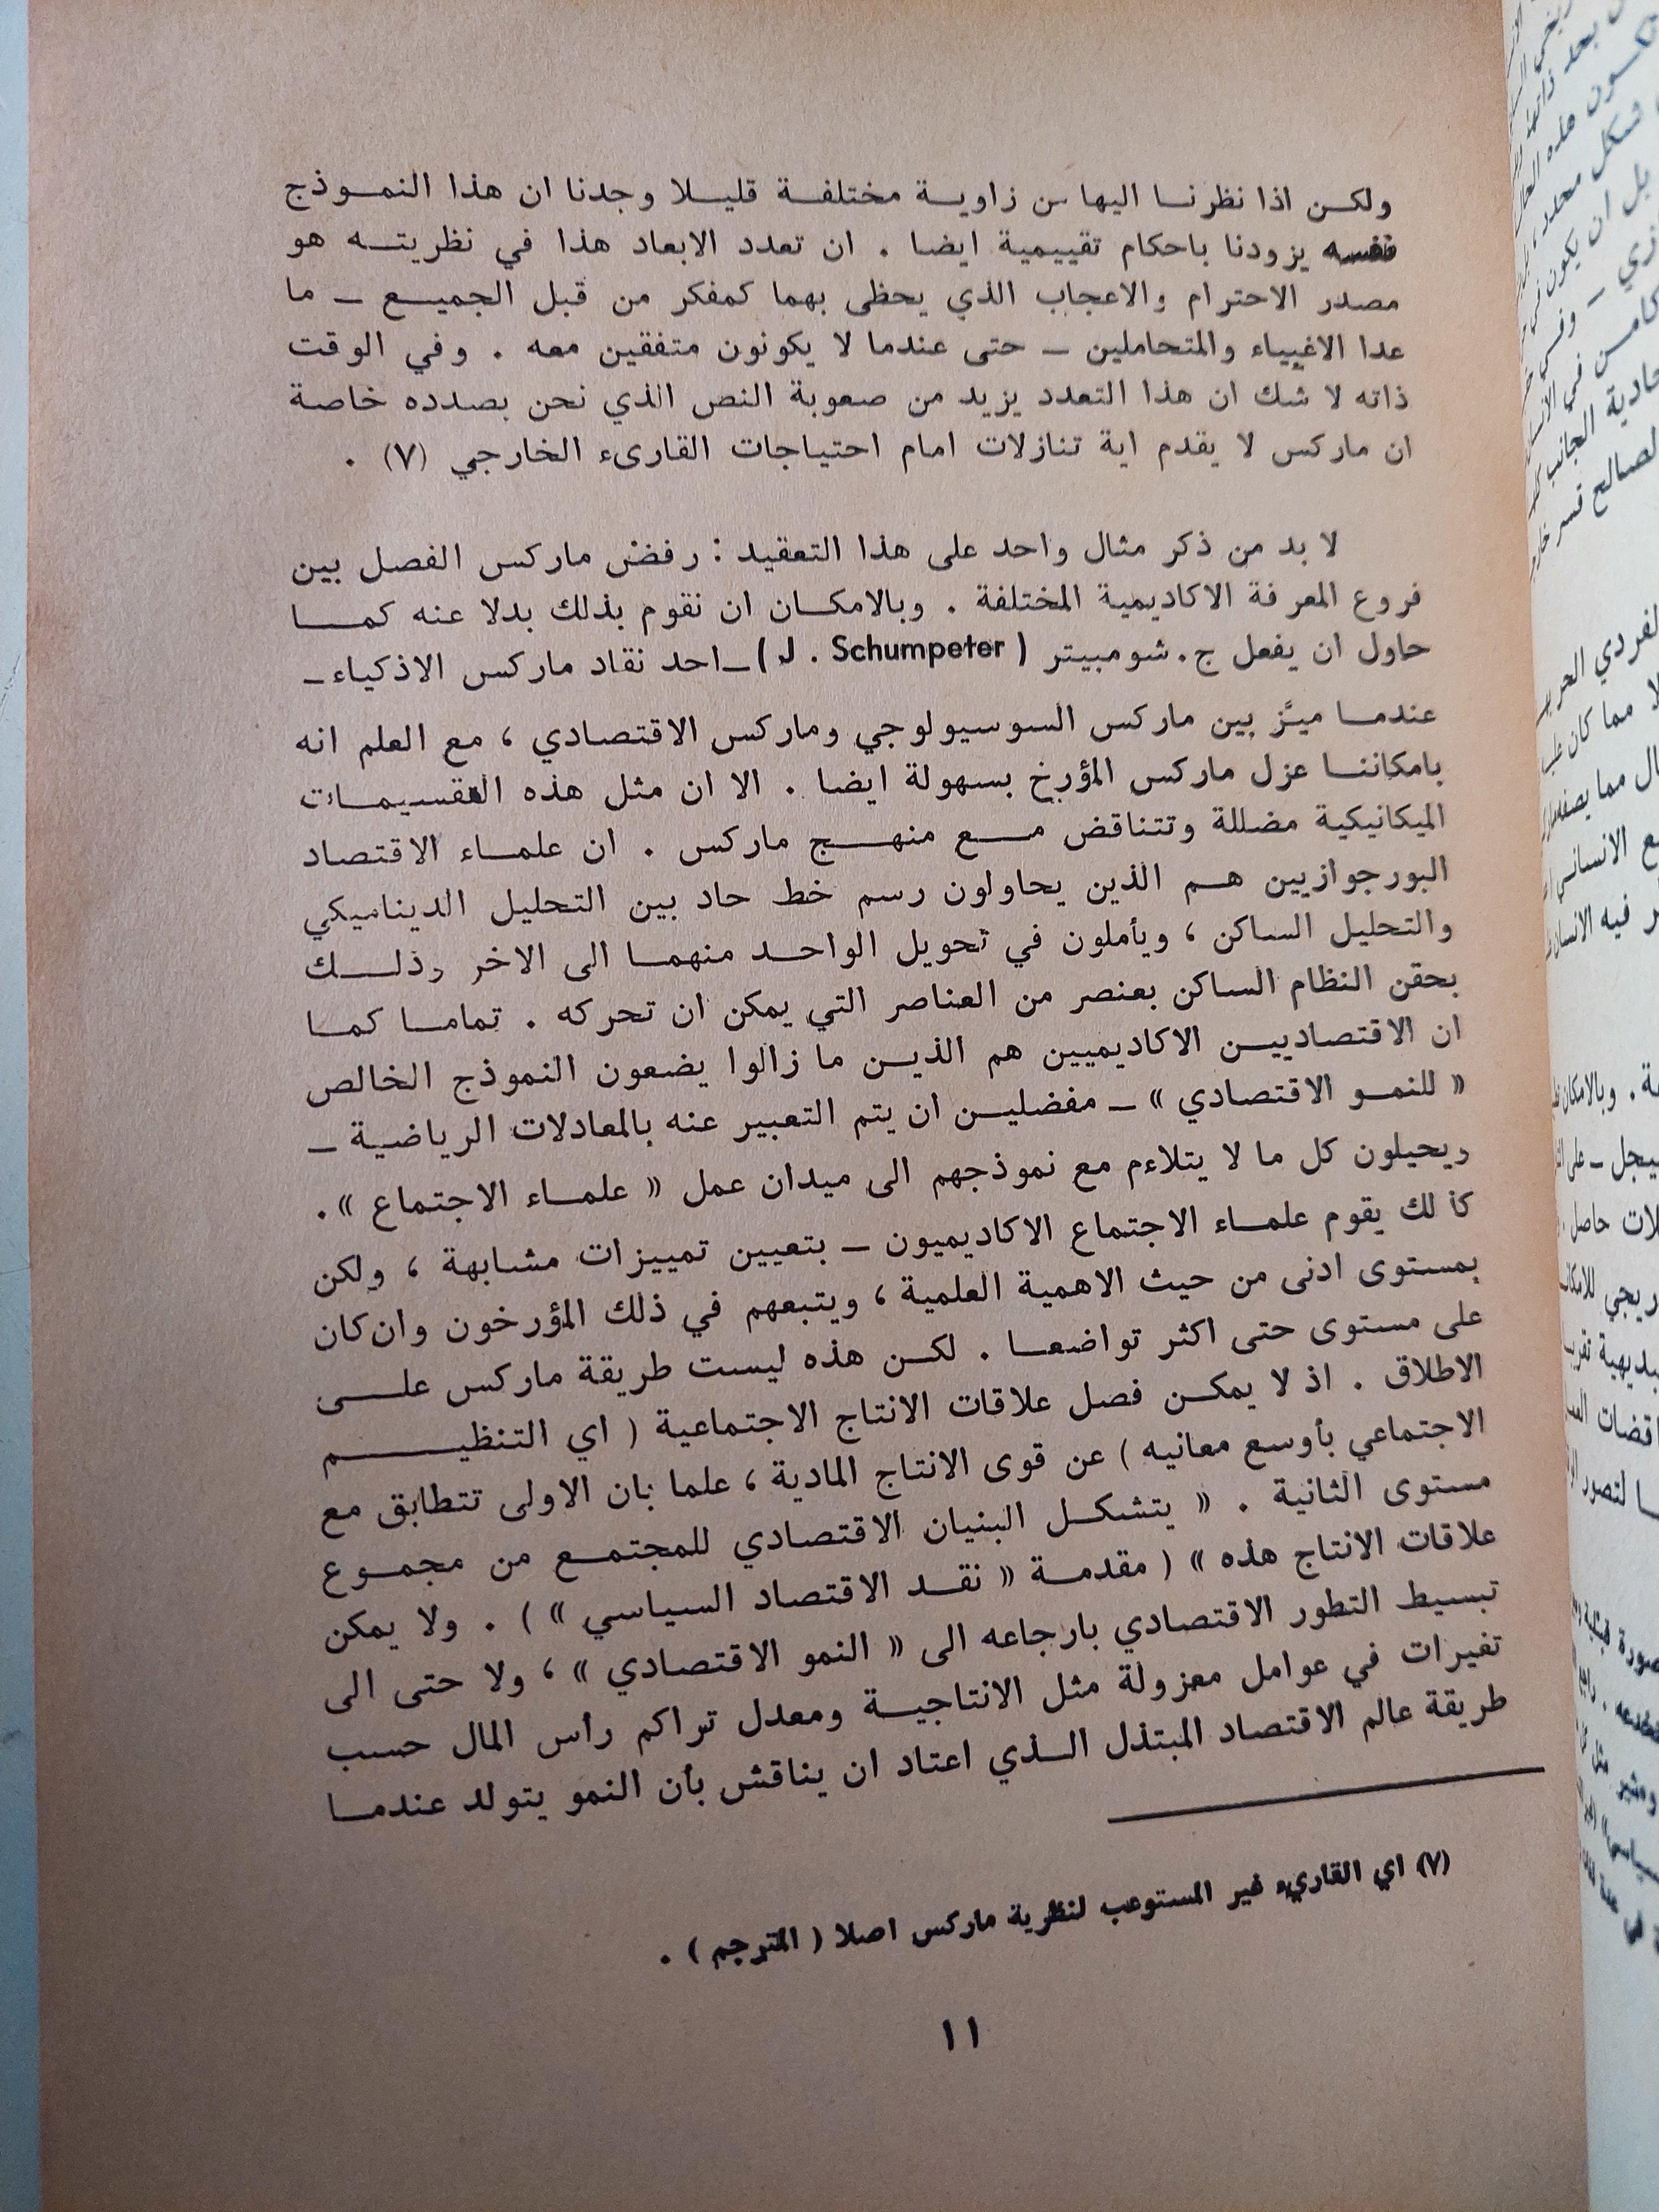 ولكن اذا نظرنا اليها من زاوية مختلفة قليلا وجدنا ان هذا النموذج
نفسه يزودنا باحكام تقييمية ايضا . ان تعدد الابعاد هذا في نظريته هو
مصدر الاحترام والاعجاب الذي يحظى بهما كمفكر من قبل الجميع ــ ما
عدا الاغبياء والمتحاملين ــ حتى عندما لا يكونون متفقين معه . وفي الوقت
ذاته لا شك ان هذا التعدد يزيد من صعوبة النص الذي نحن بصدده خاصة
ان ماركس لا يقدم اية تنازلات امام احتياجات القارىء الخارجي (٧) .
لا بد من ذكر مثال واحد على هذا التعقيد : رفض ماركس الفصل بين
فروع المعرفة الاكاديمية المختلفة . وبالامكان ان نقوم بذلك بدلا عنه كما
حاول ان يفعل ج. شومبيتر ( J . Schumpeter ) ــ احد نقاد ماركس الاذكياء ــ
عندما ميَّز بين ماركس السوسيولوجي وماركس الاقتصادي ، مع العلم انه
بامكاننا عزل ماركس المؤرخ بسهولة ايضا . الا ان مثل هذه التقسيمات
الميكانيكية مضللة وتتناقض مع منهج ماركس . ان علماء الاقتصاد
البورجوازيين هم الذين يحاولون رسم خط حاد بين التحليل الديناميكي
والتحليل الساكن ، ويأملون في تحويل الواحد منهما الى الاخر وذلك
بحقن النظام الساكن بعنصر من العناصر التي يمكن ان تحركه . تماما كما
ان الاقتصاديين الاكاديميين هم الذين ما زالوا يضعون النموذج الخالص
« للنمو الاقتصادي » ــ مفضلين ان يتم التعبير عنه بالمعادلات الرياضية ــ
ويحيلون كل ما لا يتلاءم مع نموذجهم الى ميدان عمل « علماء الاجتماع » .
كذلك يقوم علماء الاجتماع الاكاديميون ــ بتعيين تمييزات مشابهة ، ولكن
بمستوى ادنى من حيث الاهمية العلمية ، ويتبعهم في ذلك المؤرخون وان كان
على مستوى حتى اكثر تواضعا . لكن هذه ليست طريقة ماركس على
الاطلاق . اذ لا يمكن فصل علاقات الانتاج الاجتماعية ( اي التنظيم
الاجتماعي بأوسع معانيه ) عن قوى الانتاج المادية ، علما بان الاولى تتطابق مع
مستوى الثانية . « يتشكل البنيان الاقتصادي للمجتمع من مجموع
علاقات الانتاج هذه » ( مقدمة « نقد الاقتصاد السياسي » ) . ولا يمكن
تبسيط التطور الاقتصادي بارجاعه الى « النمو الاقتصادي » ، ولا حتى الى
تغيرات في عوامل معزولة مثل الانتاجية ومعدل تراكم رأس المال حسب
طريقة عالم الاقتصاد المبتذل الذي اعتاد ان يناقش بأن النمو يتولد عندما
(٧) اي القاريء غير المستوعب لنظرية ماركس اصلا ( المترجم ) .
١١